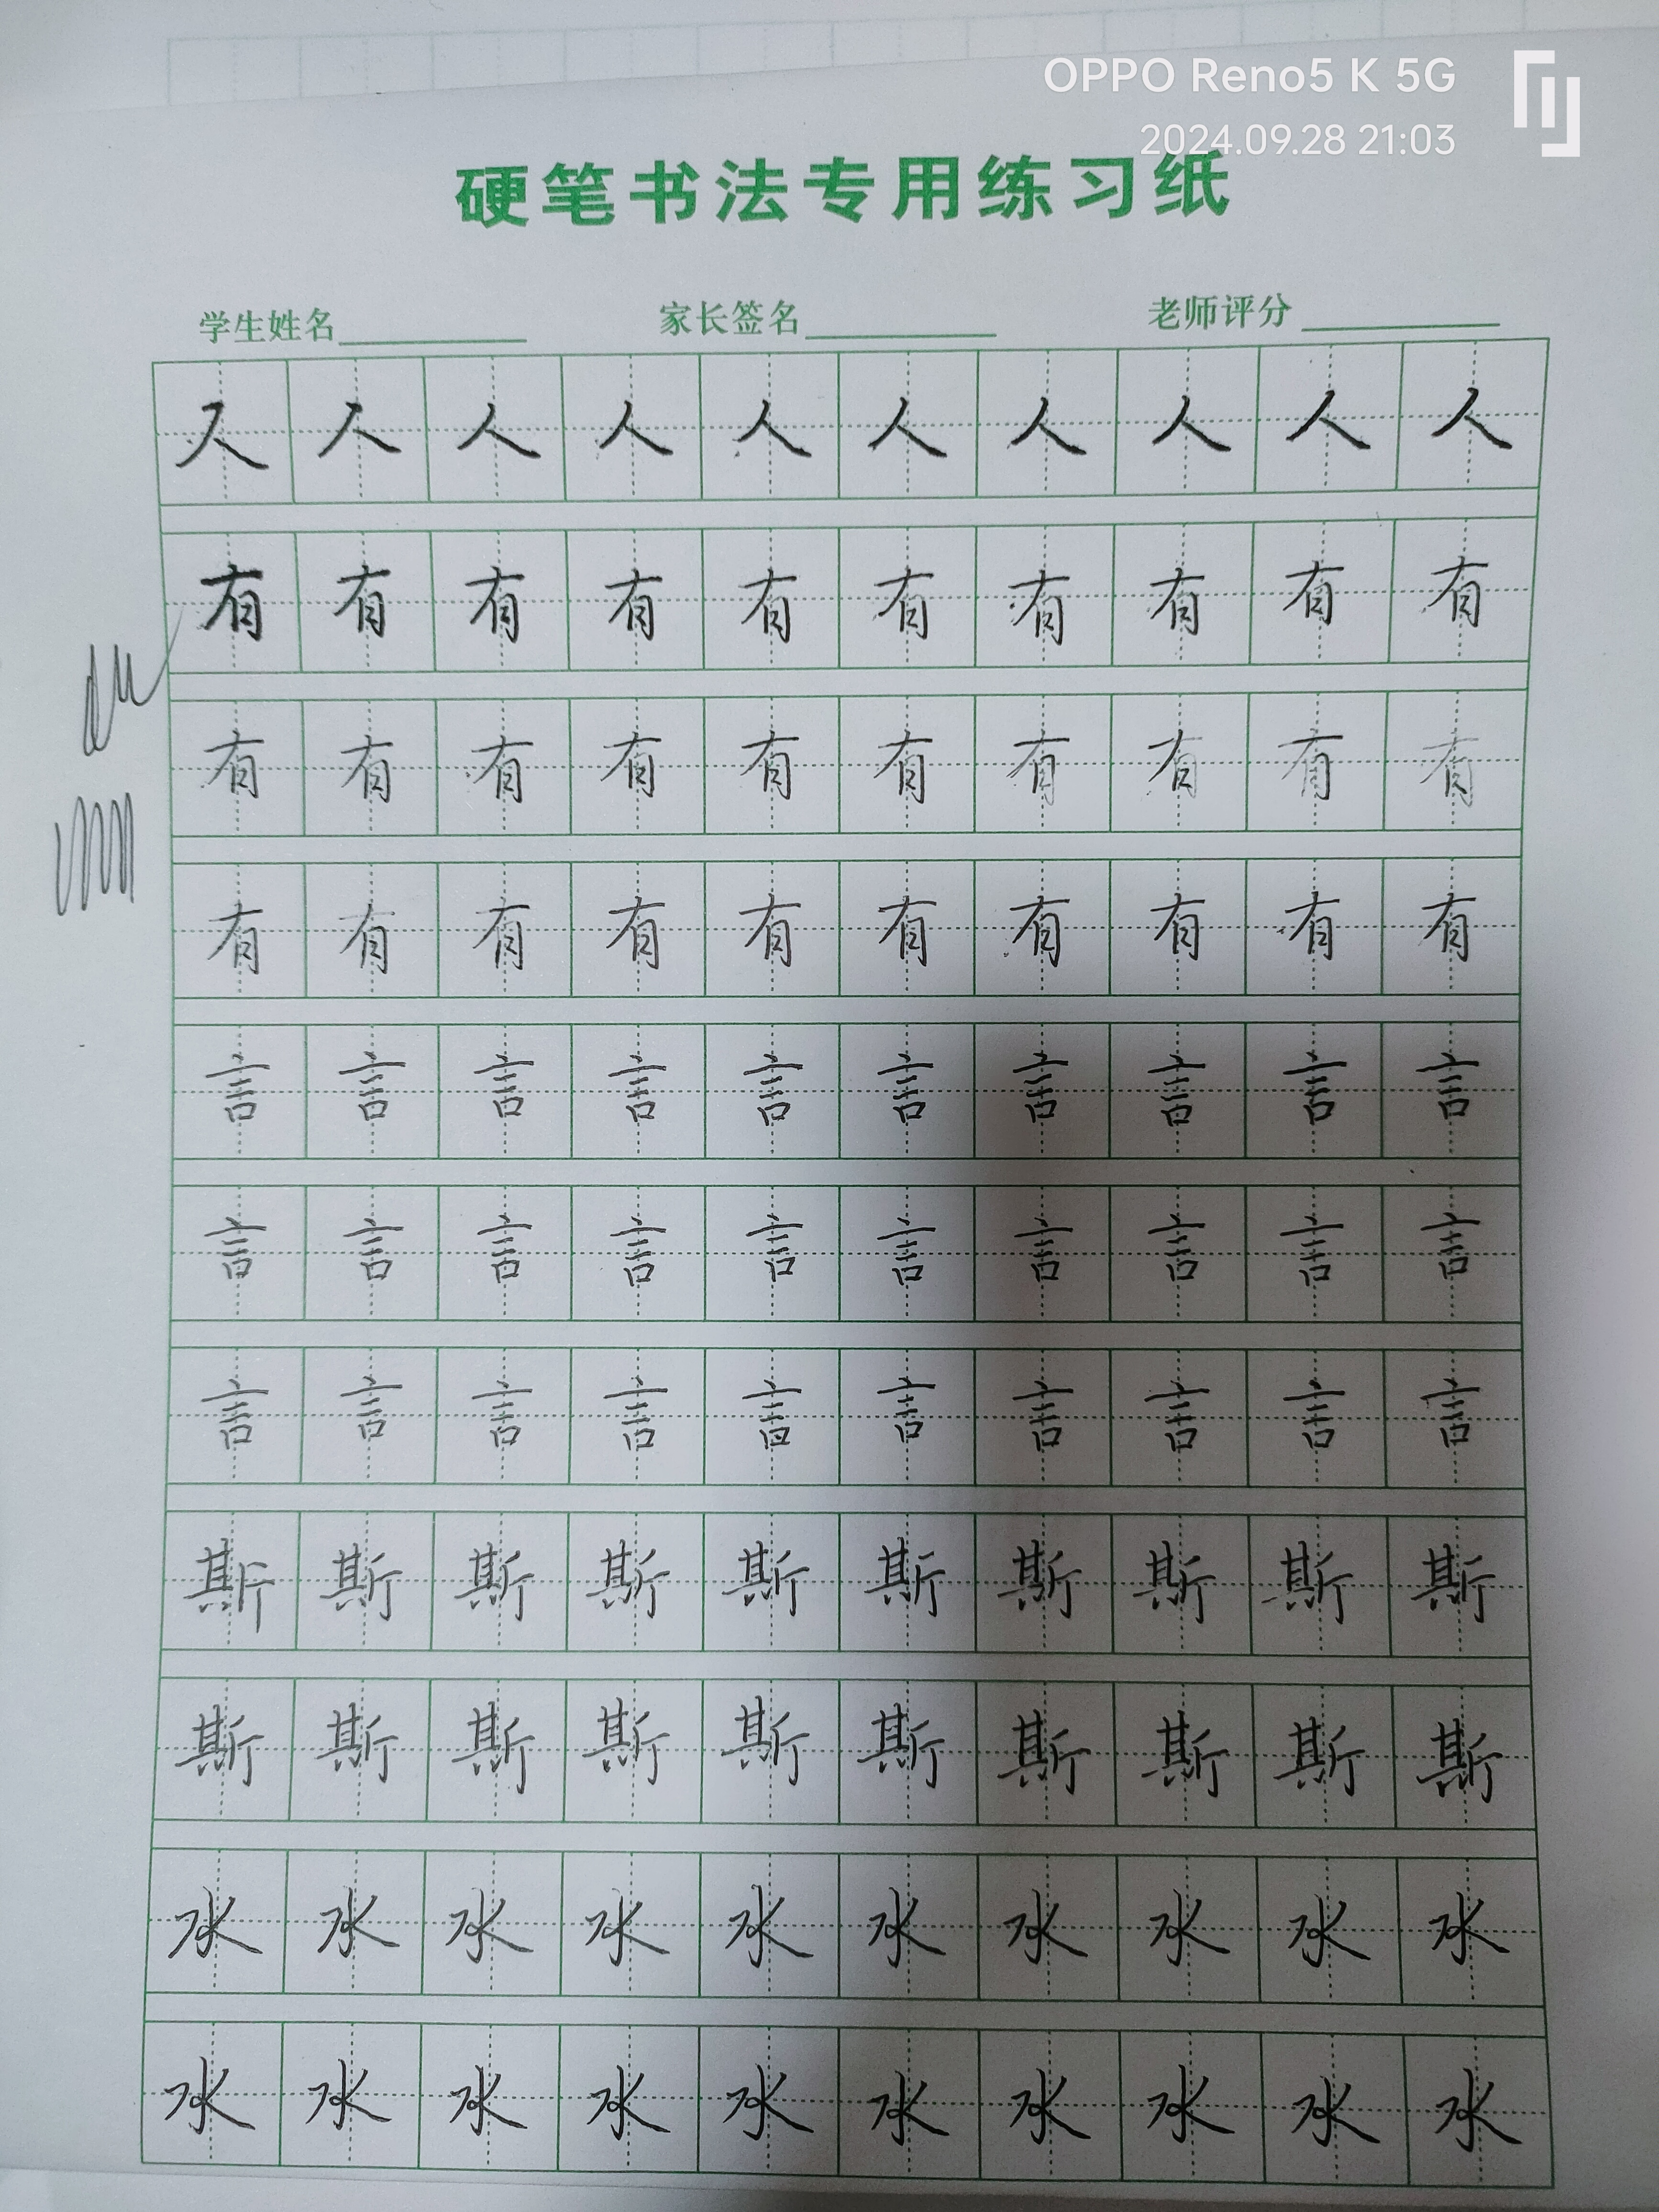 OPPO Reno5 K 5G
2024.09.28 21:03
硬笔书法专用练习纸
学生姓名 家长签名 老师评分
人人人人人人人人人人
有有有有有有有有有有
有有有有有有有有有有
有有有有有有有有有有
言言言言言言言言言言
言言言言言言言言言言
言言言言言言言言言言
斯斯斯斯斯斯斯斯斯斯
斯斯斯斯斯斯斯斯斯斯
水水水水水水水水水水
水水水水水水水水水水